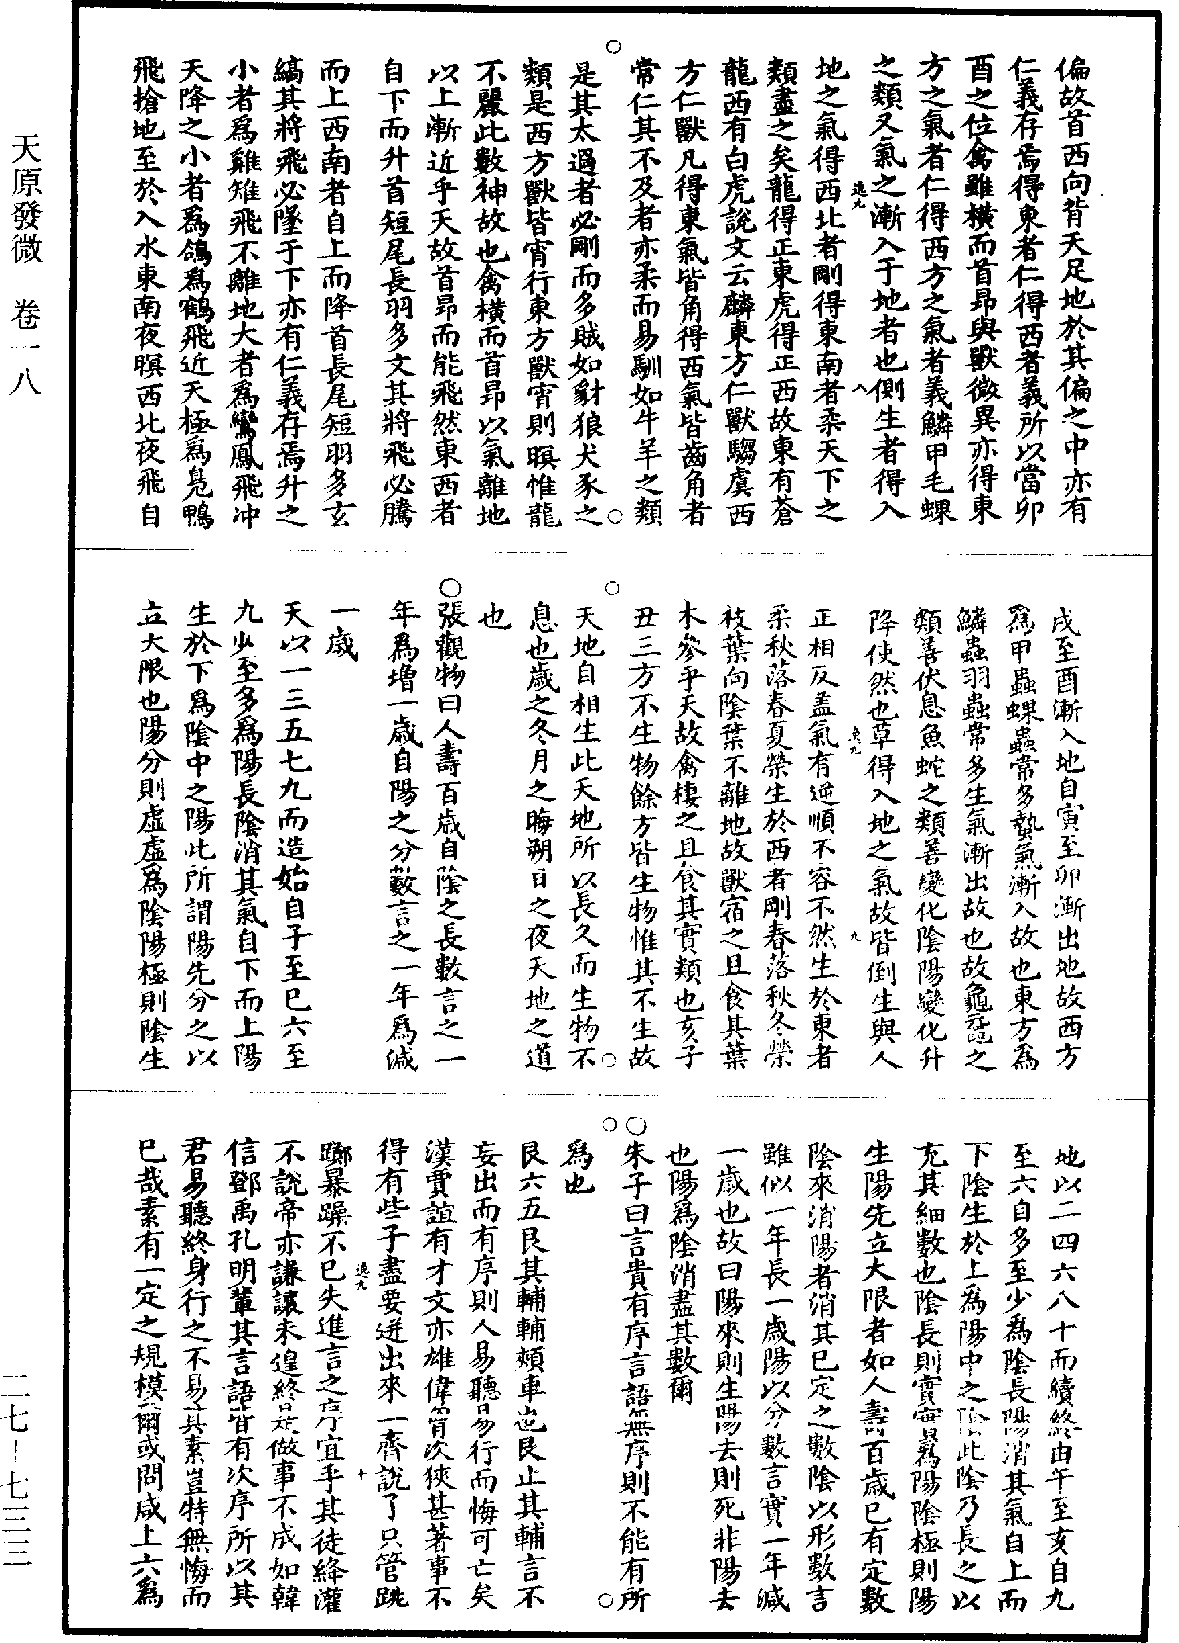 天原發微 卷一八
二七—七三三
偏故首西向背天足地於其偏之中亦有
仁義存焉得東者仁得西者義所以當卯
酉之位禽雖橫而首昂與獸微異亦得東
方之氣者仁得西方之氣者義鱗甲毛蜾
之類又氣之漸入于地者也側生者得入
地之氣得西北者剛得東南者柔天下之
類盡之矣龍得正東虎得正西故東有蒼
龍西有白虎說文云麟東方仁獸騶虞西
方仁獸凡得東氣皆角得西氣皆齒角者
常仁其不及者亦柔而易馴如牛羊之類
是其太過者必剛而多賊如豺狼犬豕之
類是西方獸皆宵行東方獸宵則暝惟龍
不麗此數神故也禽橫而首昂以氣離地
以上漸近乎天故首昂而能飛然東西者
自下而升首短尾長羽多文其將飛必騰
而上西南者自上而降首長尾短羽多玄
縞其將飛必墜于下亦有仁義存焉升之
小者爲雞雉飛不離地大者爲鸞鳳飛冲
天降之小者爲鴿爲鶴飛近天極爲鳧鴨
飛搶地至於入水東南夜暝西北夜飛自
戌至酉漸入地自寅至卯漸出地故西方
爲甲蟲蜾蟲常多蟄氣漸入故也東方爲
鱗蟲羽蟲常多生氣漸出故也故龜黿之
類善伏息魚蛇之類善變化陰陽變化升
降使然也草得入地之氣故皆倒生與人
正相反盖氣有逆順不容不然生於東者
柔秋落春夏榮生於西者剛春落秋冬榮
枝葉向陰葉不離地故獸宿之且食其葉
木參乎天故禽棲之且食其實類也亥子
丑三方不生物餘方皆生物惟其不生故
天地自相生此天地所以長久而生物不
息也歲之冬月之晦朔日之夜天地之道
也
○張觀物曰人壽百歲自陰之長數言之一
年爲增一歲自陽之分數言之一年爲減
一歲
天以一三五七九而造始自子至巳六至
九少至多爲陽長陰消其氣自下而上陽
生於下爲陰中之陽此所謂陽先分之以
立大限也陽分則虛虛爲陰陽極則陰生
地以二四六八十而續終由午至亥自九
至六自多至少爲陰長陽消其氣自上而
下陰生於上爲陽中之陰此陰乃長之以
充其細數也陰長則實實爲陽陰極則陽
生陽先立大限者如人壽百歲已有定數
陰來消陽者消其已定之數陰以形數言
雖似一年長一歲陽以分數言實一年減
一歲也故曰陽來則生陽去則死非陽去
也陽爲陰消盡其數爾
○朱子曰言貴有序言語無序則不能有所
爲也
艮六五艮其輔輔頰車也艮止其輔言不
妄出而有序則人易聽易行而悔可亡矣
漢賈誼有才文亦雄偉胷次狹甚著事不
得有些子盡要迸出來一齊說了只管跳
躑暴躁不已失進言之序宜乎其徒絳灌
不說帝亦謙讓未遑終是做事不成如韓
信鄧禹孔明輩其言語皆有次序所以其
君易聽終身行之不易其素豈特無悔而
已哉素有一定之規模爾或問咸上六爲